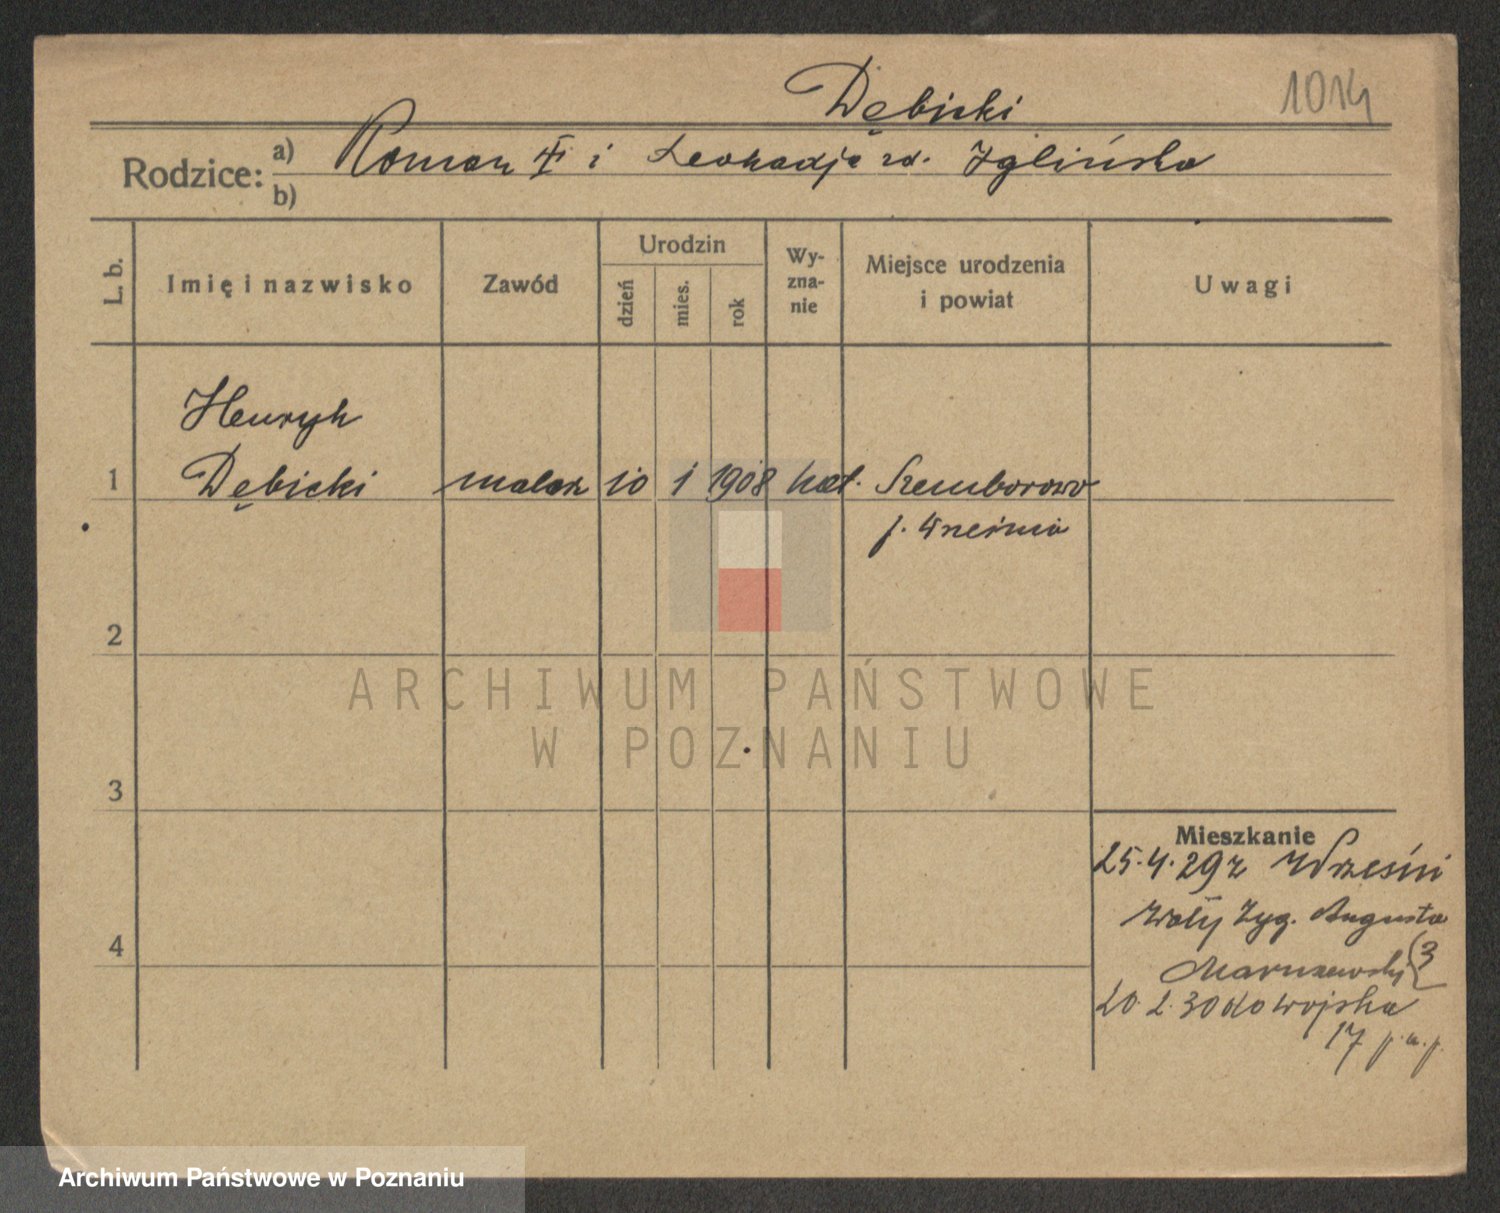 Dębicki
1014
Rodzice: a) Roman i Leokadja zd. Iglińska
b)
L. b.
Imię i nazwisko
Zawód
Urodzin
dzień
mies.
rok
Wy-
zna-
nie
Miejsce urodzenia
i powiat
Uwagi
Henryk
1 Dębicki malarz 10 1 1908 kat. Szemborowo
p. Września
2
ARCHIWUM PAŃSTWOWE
W POZNANIU
3
Mieszkanie
25.4.29 z Wrześni
Zyg. Augusta
4
3
20.2.30 do wojska
17 p.a.p.
Archiwum Państwowe w Poznaniu